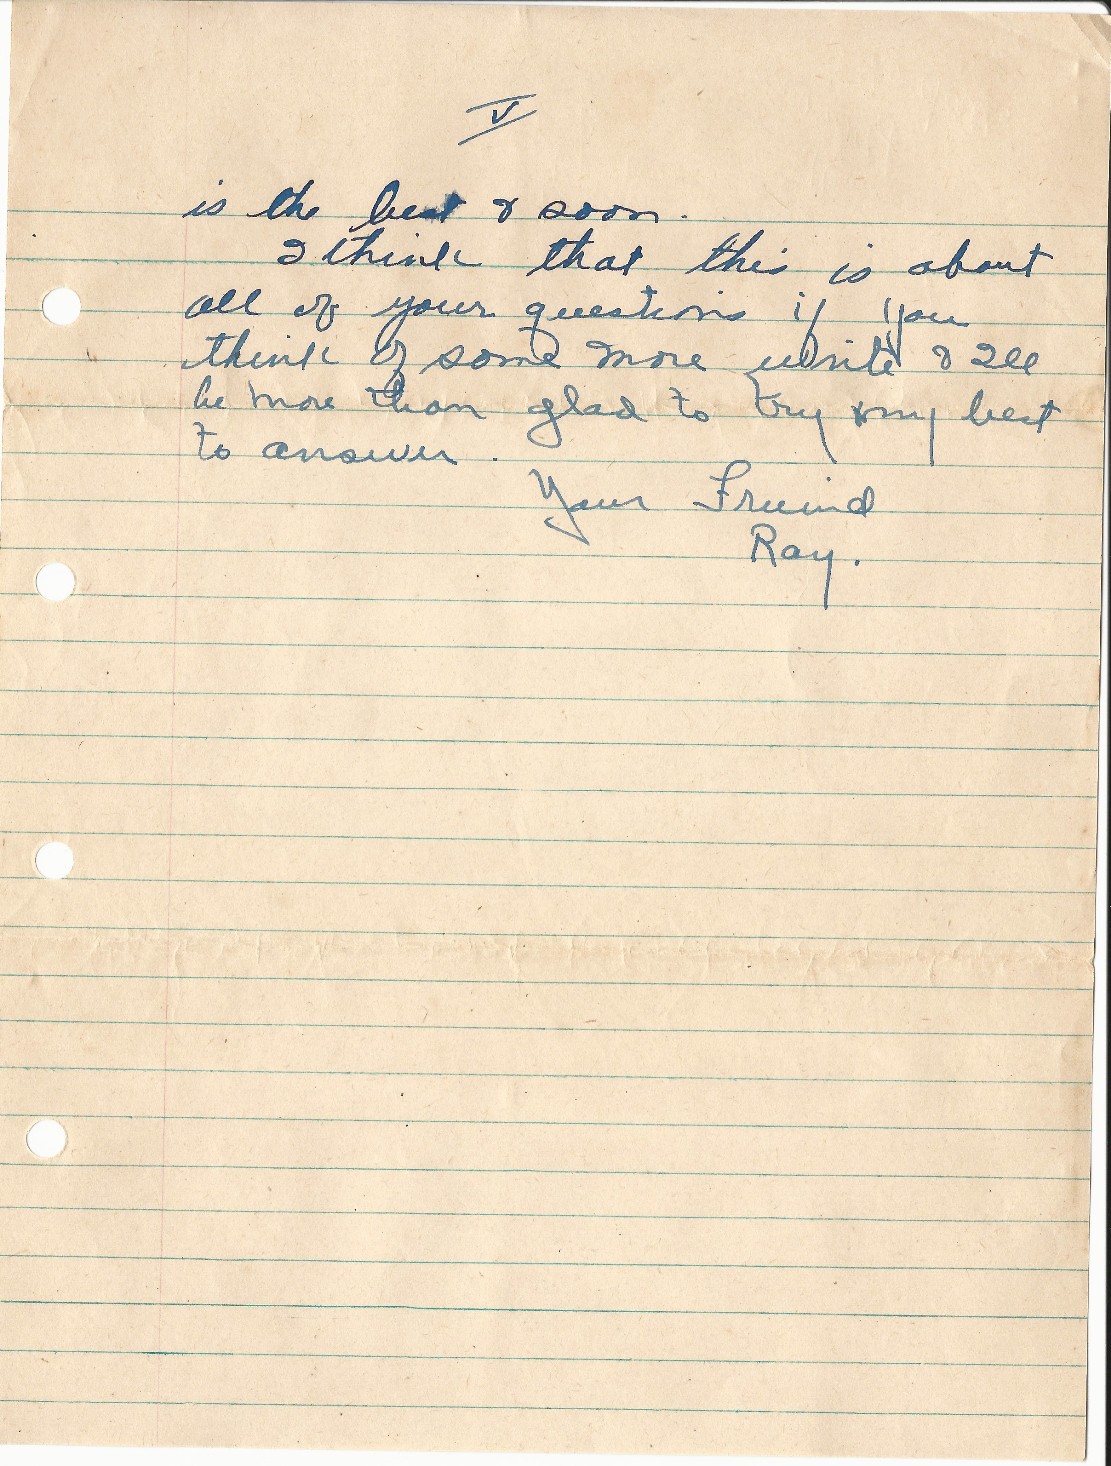 V
is the best & soon.
I think that this is about
all of your questions if you
think of some more write & Ill
be more than glad to try my best
to answer.
Your Freind
Ray.